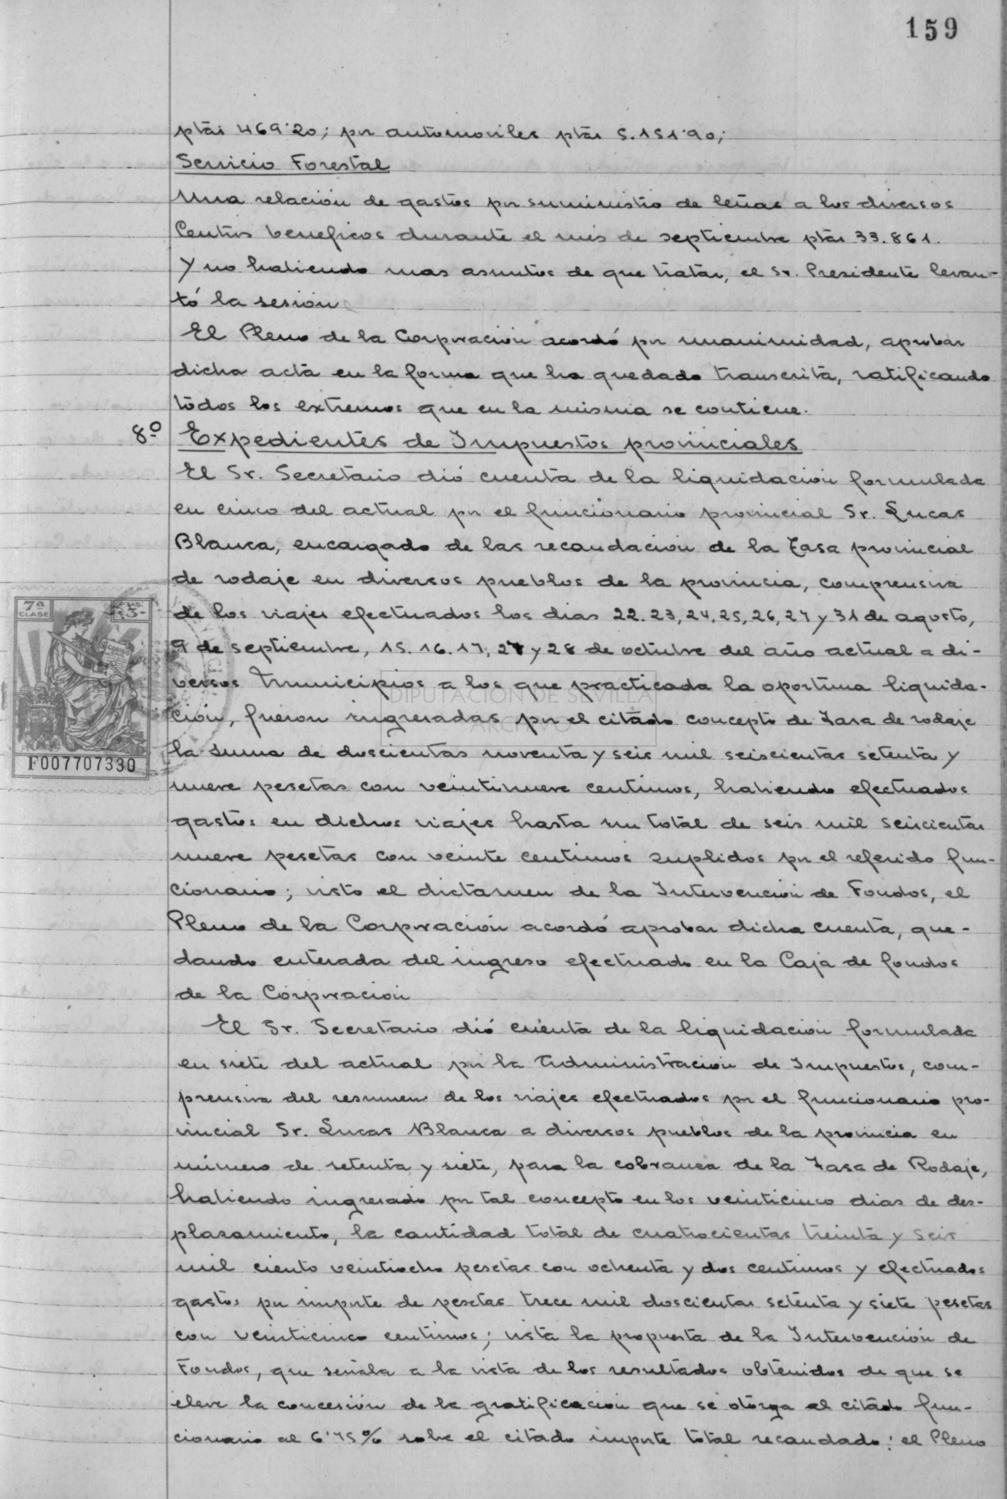 159
ptas 469'20; por automoviles ptas 5.151'90;
Servicio Forestal
Una relación de gastos por suministro de leñas a los diversos
Centros beneficos durante el mes de septiembre ptas 33.861.
Y no habiendo mas asuntos de que tratar, el Sr. Presidente levan-
tó la sesión
El Pleno de la Corporación acordó por unanimidad, aprobar
dicha acta en la forma que ha quedado transcrita, ratificando
todos los extremos que en la misma se contiene.
8º Expedientes de Impuestos provinciales
El Sr. Secretario dió cuenta de la liquidación formulada
en cinco del actual por el funcionario provincial Sr. Lucas
Blanca, encargado de las recaudación de la Tasa provincial
de rodaje en diversos pueblos de la provincia, comprensiva
de los viajes efectuados los dias 22.23,24,25,26,27 y 31 de agosto,
9 de septiembre, 15.16.17,27 y 28 de octubre del año actual a di-
versos municipios a los que practicada la oportuna liquida-
ción, fueron ingresadas por el citado concepto de Tasa de rodaje
la suma de doscientas noventa y seis mil seiscientas setenta y
nueve pesetas con veintinueve centimos, habiendo efectuados
gastos en dichos viajes hasta un total de seis mil seiscientas
nueve pesetas con veinte centimos suplidos por el referido fun-
cionario; visto el dictamen de la Intervención de Fondos, el
Pleno de la Corporación acordó aprobar dicha cuenta, que-
dando enterada del ingreso efectuado en la Caja de fondos
de la Corporación
El Sr. Secretario dió cuenta de la liquidación formulada
en siete del actual por la Administración de Impuestos, com-
prensiva del resumen de los viajes efectuados por el funcionario pro-
vincial Sr. Lucas Blanca a diversos pueblos de la provincia en
número de setenta y siete, para la cobranza de la Tasa de Rodaje,
habiendo ingresado por tal concepto en los veinticinco dias de des-
plazamiento, la cantidad total de cuatrocientas treinta y seis
mil ciento veintiocho pesetas con ochenta y dos centimos y efectuados
gastos por importe de pesetas trece mil doscientas setenta y siete pesetas
con veinticinco centimos; vista la propuesta de la Intervención de
Fondos, que señala a la vista de los resultados obtenidos de que se
eleve la concesión de la gratificación que se otorga al citado fun-
cionario al 6'75% sobre el citado importe total recaudado: el Pleno
7ª CLASE
5
F007707330
DIPUTACIÓN DE SEVILLA
ARCHIVO